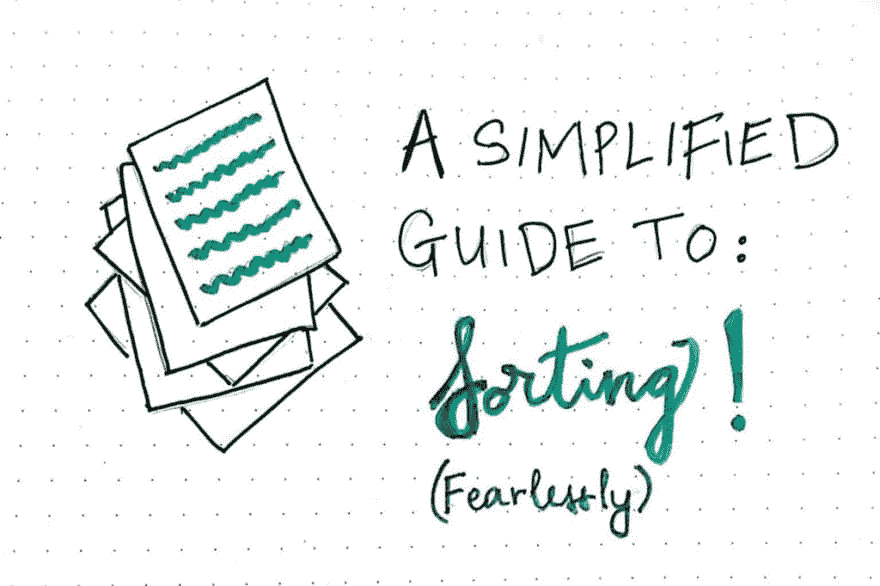 A SIMPLIFIED
GUIDE TO:
Sorting!
(Fearlessly)